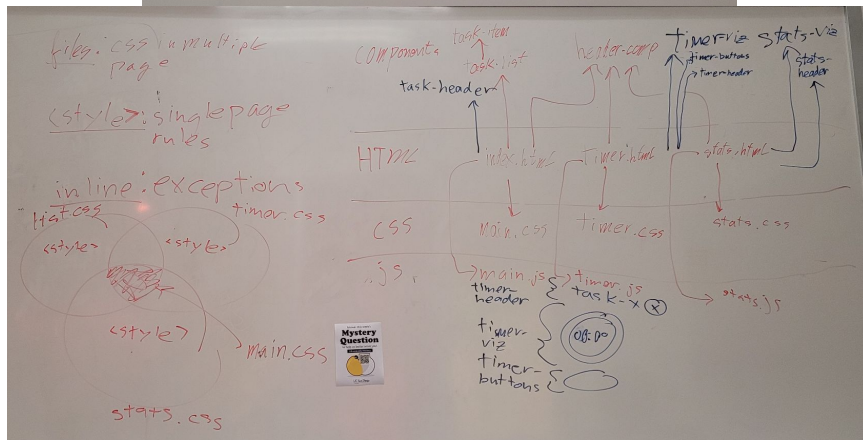 files: css in multiple
page
<style>: single page
rules
inline: exceptions
list.css
timer.css
<style>
<style>
<style>
main.css
stats.css
components
task-item
task-list
task-header
header-comp
timer-viz
timer-buttons
timer-header
stats-viz
stats-
header
HTML
index.html
timer.html
stats.html
css
main.css
timer.css
stats.css
.js
main.js
timer.js
stats.js
timer-
header
task-x
x
timer-
viz
00:00
timer-
buttons
Mystery
Question